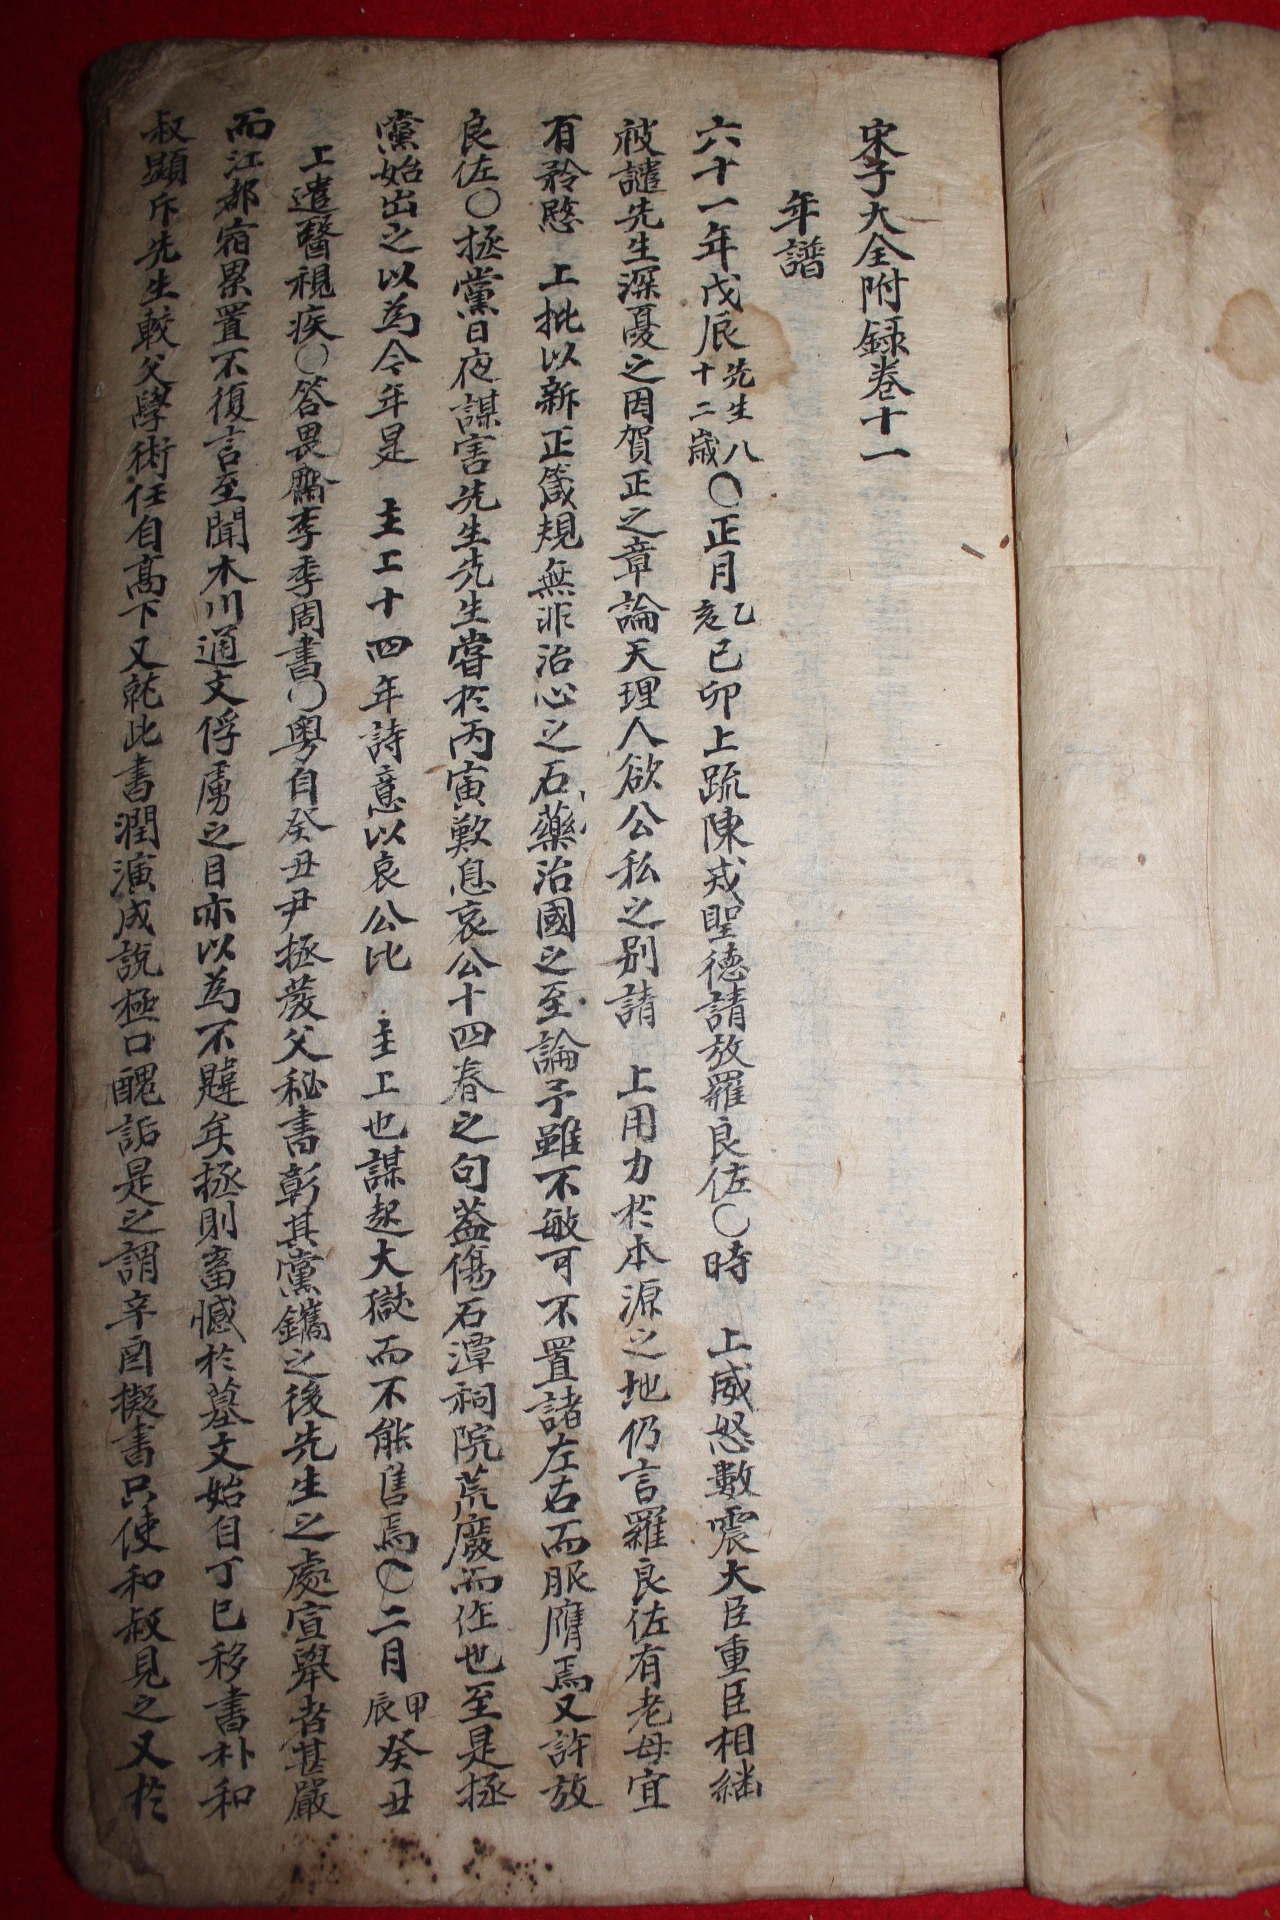 宋子大全附録卷十一
年譜
六十一年戊辰先生八十二歲○正月乙亥己卯上疏陳戎聖德請放羅良佐○時 上威怒數震大臣重臣相繼
被譴先生深憂之因賀正之章論天理人欲公私之别請 上用力於本源之地仍言羅良佐有老母宜
有矜愍 上批以新正箴規無非治心之石藥治國之至論予雖不敏可不置諸左右而服膺焉又許放
良佐○拯黨日夜謀害先生先生嘗於丙寅歎息哀公十四春之句盖傷石潭祠院荒廢而作也至是拯
黨始出之以為今年是 主上十四年詩意以哀公比 主上也謀起大獄而不能售焉○二月甲辰癸丑
上遣醫視疾○答畏齋李季周書○粤自癸丑尹拯發父秘書彰其黨鑴之後先生之處宣舉者甚嚴
而江都宿累置不復言至聞木川通文俘虜之目亦以為不韙矣拯則畜憾於墓文始自丁巳移書朴和
叔顯斥先生較父學術任自高下又就此書潤演成說極口醜詬是之謂辛酉擬書只使和叔見之又於